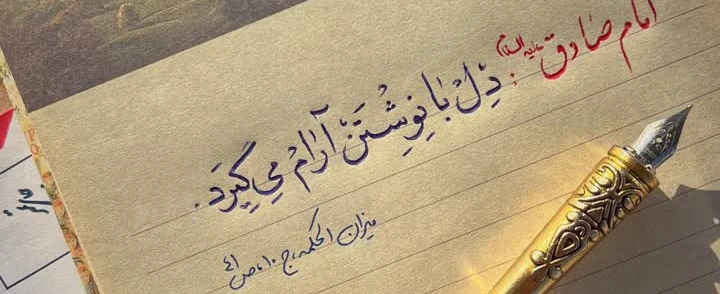 امام صادق علیه السلام:
دِلْ بٰا نِوِشْتَنْ آرٰامْ مي گیرَد.
میزان الحکمه، ج۱۰، ص